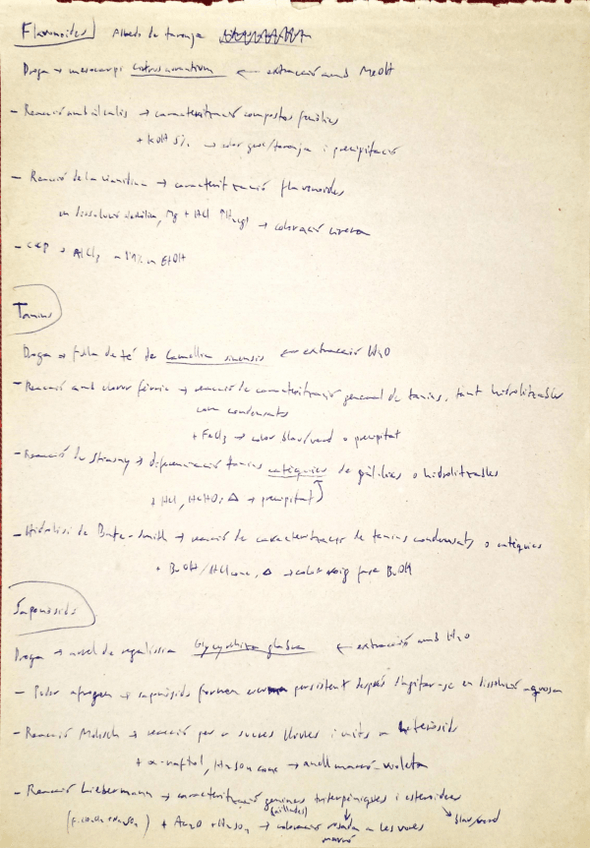 Flavonoides Albedo de taronja
Droga → mesocarpi citrus aurantium ← extracció amb MeOH
- Reacció amb àlcalis → caracterització compostos fenòlics
+ KOH 5% → color groc/taronja i precipitació
- Reacció de la cianidina → caracterització flavonoides
en dissolució, Mg + HCl → coloració
- CCP → AlCl3 EtOH
Tanins
Droga → fulla de té de Camellia sinensis ← extracció H2O
- Reacció amb clorur fèrric → reacció de caracterització general de tanins, tant hidrolitzables
com condensats
+ FeCl3 → color blau/verd o precipitat
- Reacció de Stiasny → diferenciació tanins catèquics de gàl·lics o hidrolitzables
+ HCl, HCHO, Δ → precipitat
- Hidròlisi de Bate-Smith → reacció de caracterització de tanins condensats o catèquics
+ BuOH/HCl conc, Δ → color roig fase BuOH
Saponòsids
Droga → arrel de regalíssia Glycyrrhiza glabra ← extracció amb H2O
- Poder afrogen → saponòsids formen persistent després d'agitar-se en dissolució aquosa
- Reacció Molisch → reacció per a sucres lliures i units a heteròsids
+ α-naftol, H2SO4 conc → anell marró-violeta
- Reacció Liebermann → caracterització genines triterpèniques i esteroidees
(aïllades)
+ Ac2O + H2SO4 → coloració rosada a les vores blau/verd
marró